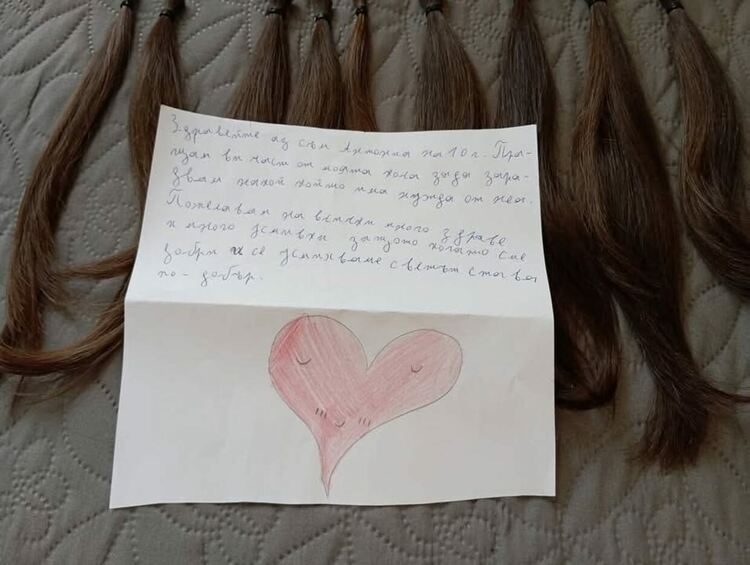 Здравейте аз съм Антония на 10 г. Пра-
щам ви част от моята коса за да зара-
двам някой който има нужда от нея.
Пожелавам на всички много здраве
и много усмивки защото когато сме
добри и се усмихваме светът става
по-добър.